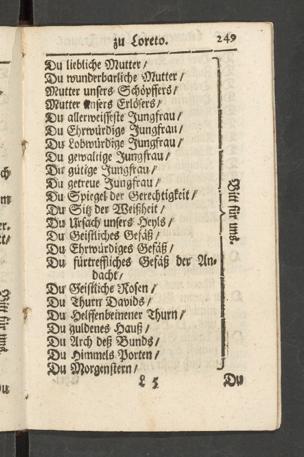 zu Loreto. 249
Du liebliche Mutter /
Du wunderbarliche Mutter /
Mutter unsers Schöpffers /
Mutter unsers Erlösers /
Du allerweisseste Jungfrau /
Du Ehrwürdige Jungfrau /
Du Lobwürdige Jungfrau /
Du gewaltige Jungfrau /
Du gütige Jungfrau /
Du getreue Jungfrau /
Du Spiegel der Gerechtigkeit /
Du Sitz der Weißheit /
Du Ursach unsers Heyls /
Du Geistliches Gefäß /
Du Ehrwürdiges Gefäß /
Du fürtreffliches Gefäß der An-
dacht /
Du Geistliche Rosen /
Du Thurn Davids /
Du Helffenbeinener Thurn /
Du guldenes Hauß /
Du Arch deß Bunds /
Du Himmels Porten /
Du Morgenstern /
Bitt für uns.
L 5 Du